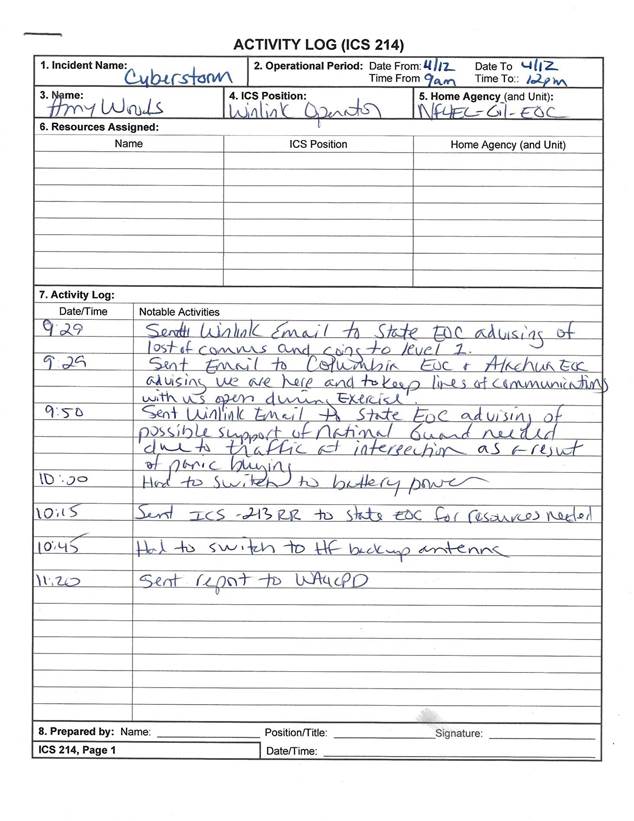 ACTIVITY LOG (ICS 214)
1. Incident Name: Cyberstorm
2. Operational Period: Date From: 4/12 Date To 4/12
Time From 9am Time To:: 12pm
3. Name: Amy Woods
4. ICS Position: Winlink Operator
5. Home Agency (and Unit): NF4EC-Gil-EOC
6. Resources Assigned:
Name ICS Position Home Agency (and Unit)
7. Activity Log:
Date/Time Notable Activities
9:29 Send Winlink Email to State EOC advising of
lost of comms and going to level 1.
9:29 Sent Email to Columbia EOC + Alachua EOC
advising we are here and to keep lines of communication
with us open during Exercise.
9:50 Sent Winlink Email to State EOC advising of
possible support of National Guard needed
due to traffic at intersection as a result
of panic buying
10:00 Had to switch to battery power
10:15 Sent ICS-213RR to State EOC for resources needed
10:45 Had to switch to HF backup antenna
11:20 Sent report to WA4CPD
8. Prepared by: Name: Position/Title: Signature:
ICS 214, Page 1 Date/Time: